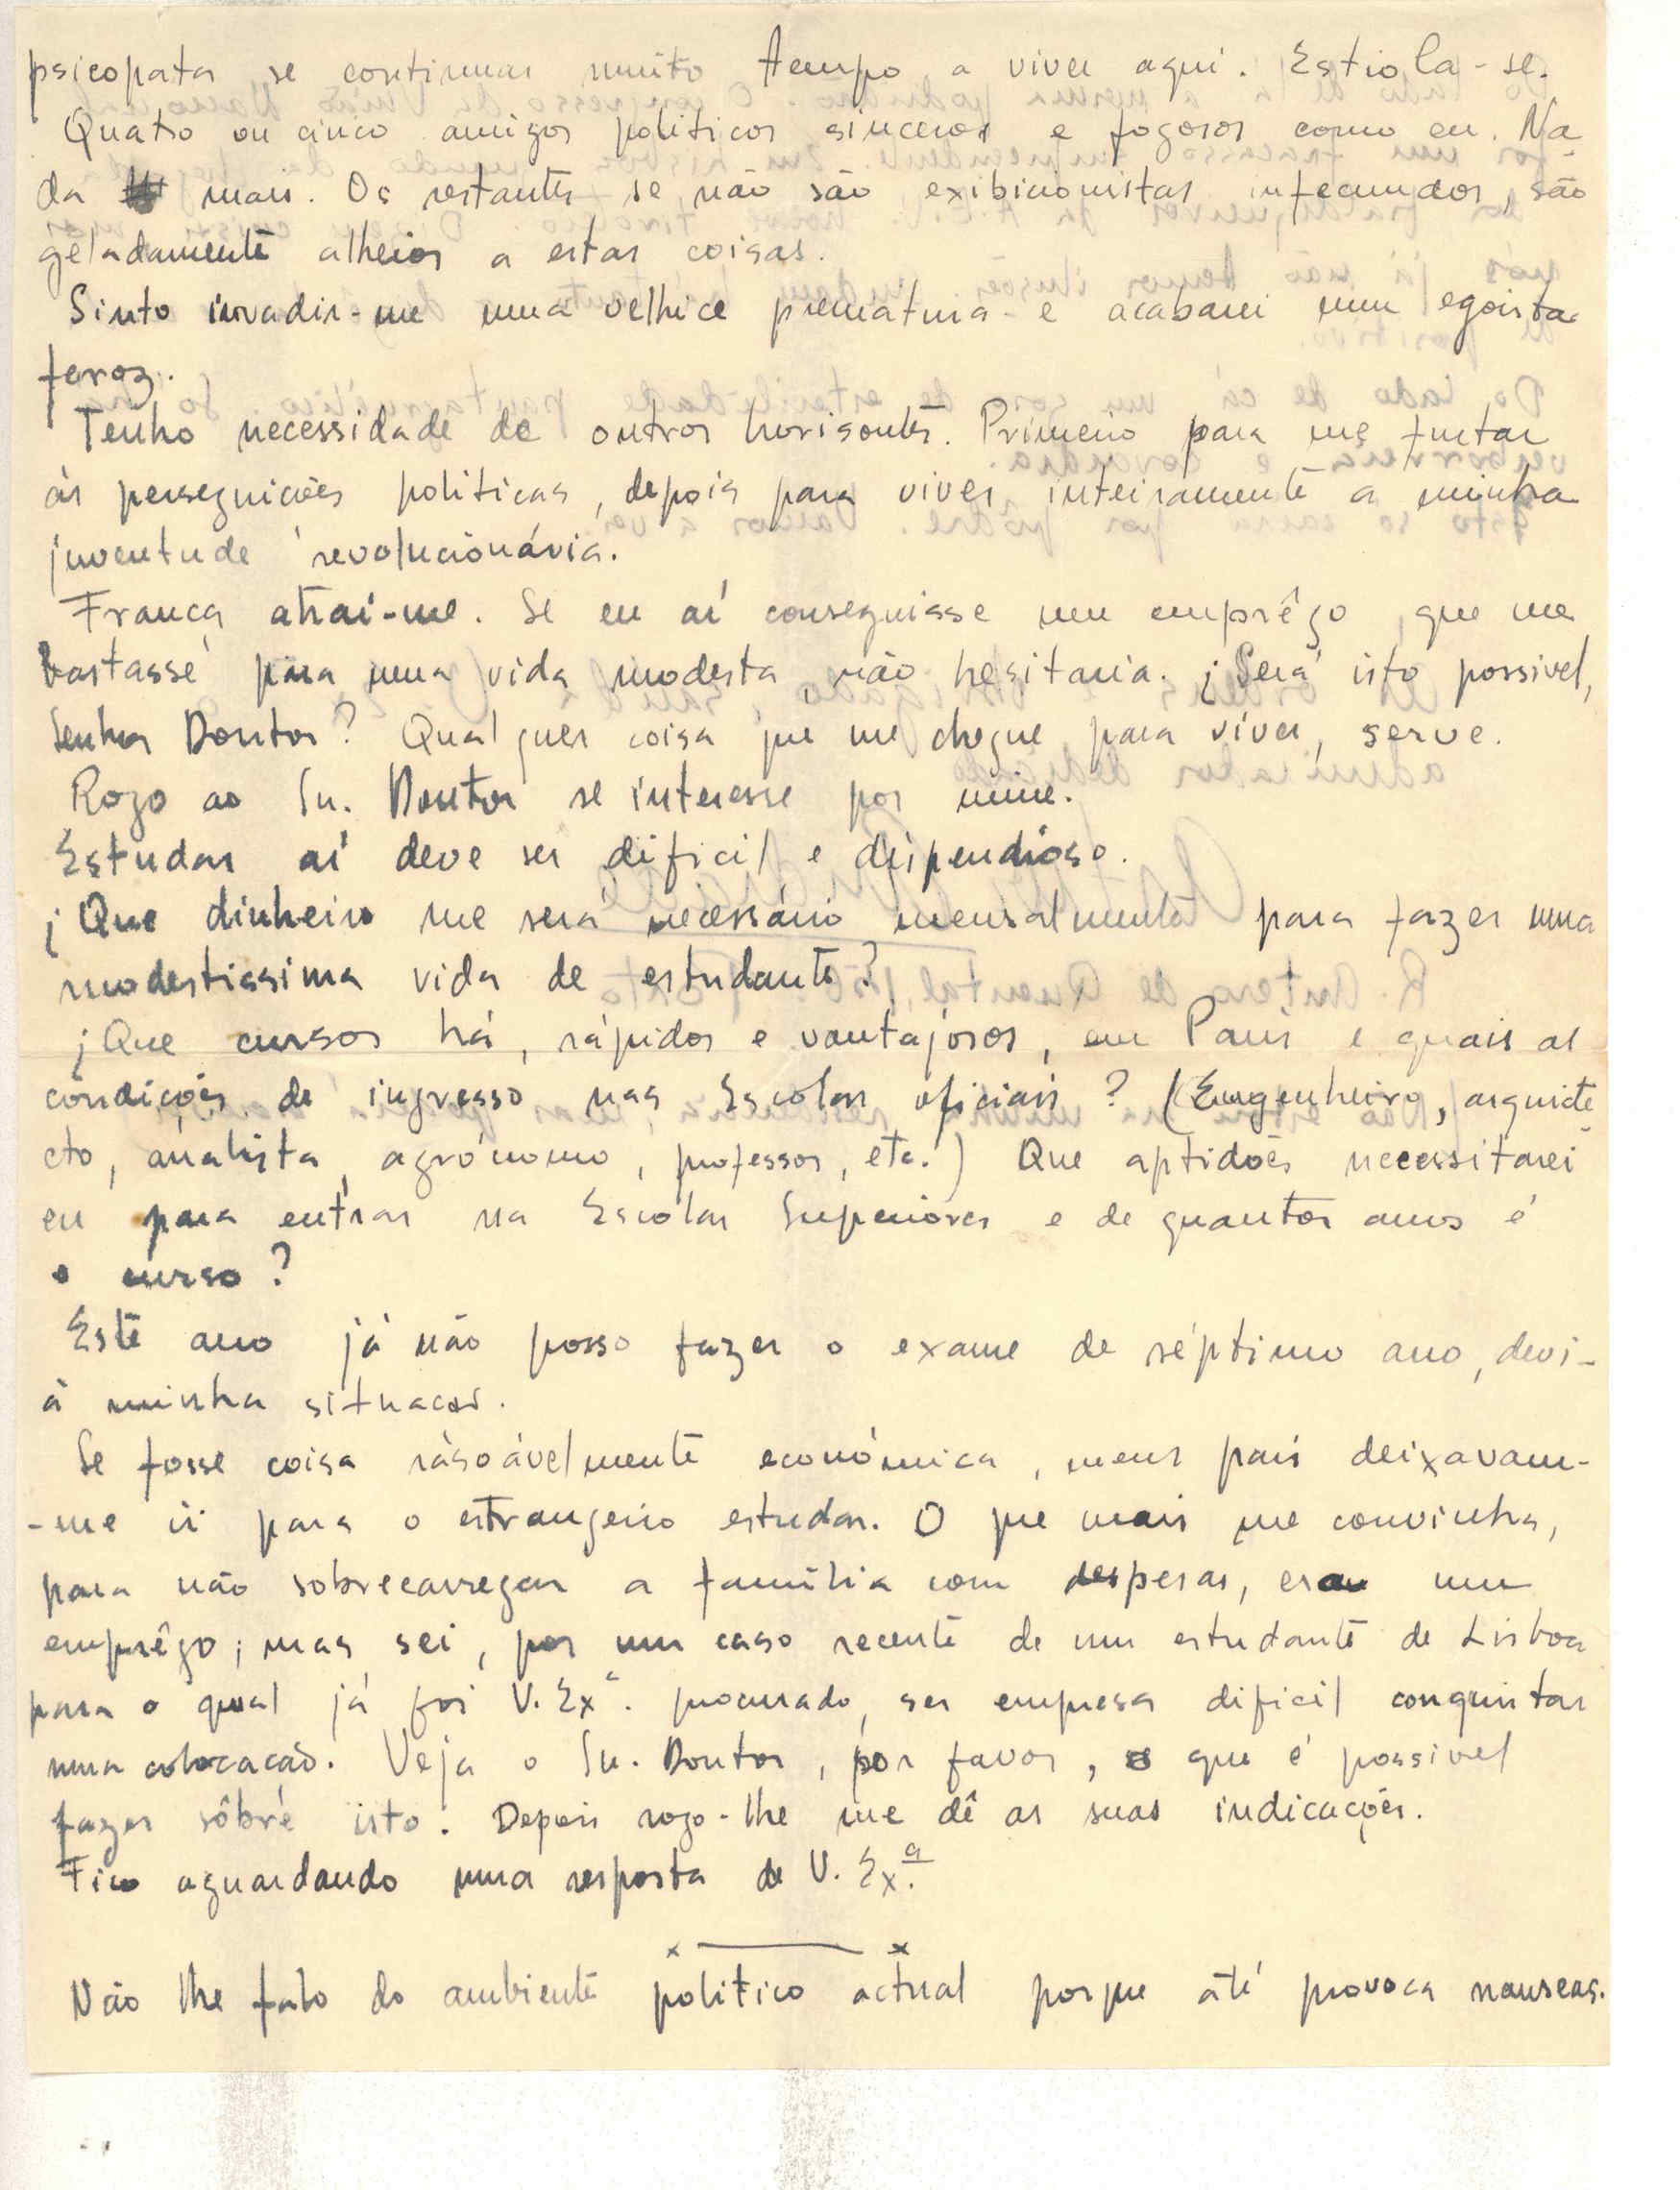 psicopata se continuar muito tempo a viver aqui. Estiola-se.
Quatro ou cinco amigos politicos sinceros e fogosos como eu. Na-
da mais. Os restantes se não são exibicionistas infecundos, são
geladamente alheios a estas coisas.
Sinto invadir-me uma velhice prematura e acabarei num egoista
feroz.
Tenho necessidade de outros horisontes. Primeiro para me furtar
ás perseguições politicas, depois para viver inteiramente a minha
juventude revolucionária.
França atrai-me. Se eu aí conseguisse um emprêgo, que me
bastasse para uma vida modesta, não hesitaria. ¡Será isto possivel,
Senhor Doutor? Qualquer coisa que me chegue para viver, serve.
Rogo ao Sr. Doutor se interesse por mim.
Estudar aí deve ser dificil e dispendioso.
¡Que dinheiro me será necessário mensalmente para fazer uma
modestissima vida de estudante?
¡Que cursos há, rápidos e vantajosos, em Paris e quais as
condições de ingresso nas Escolas oficiais? (Engenheiro, arquite-
cto, análista, agrónomo, professor, etc.) Que aptidões necessitarei
eu para entrar na Escolas Superiores e de quantos anos é
o curso?
Este ano já não posso fazer o exame de séptimo ano, devi-
á minha situação.
Se fosse coisa ràsoávelmente económica, meus pais deixavam-
-me ir para o estrangeiro estudar. O que mais me convinha,
para não sobrecarregar a família com despesas, era um
emprêgo; mas sei, por um caso recente de um estudante de Lisboa
para o qual já foi V. Exª. procurado, ser empresa dificil conquistar
uma colocação. Veja o Sr. Doutor, por favor, o que é possivel
fazer sôbre isto. Depois rogo-lhe me dê as suas indicações.
Fico aguardando uma resposta de V. Exª.
x — x
Não lhe falo do ambiente politico actual porque até provoca nauseas.